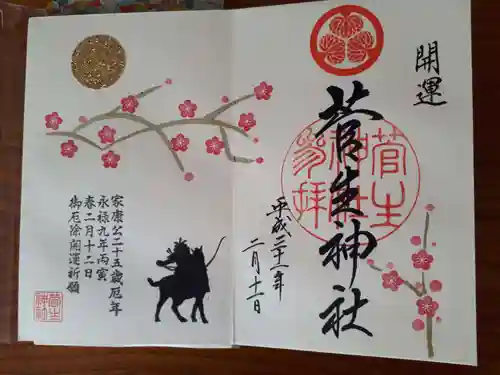 開運
菅生神社
菅生
神社
参拝
平成二十一年
二月十一日
家康公二十五歳厄年
永禄九年丙寅
春二月十二日
御厄除開運祈願
菅生
神社